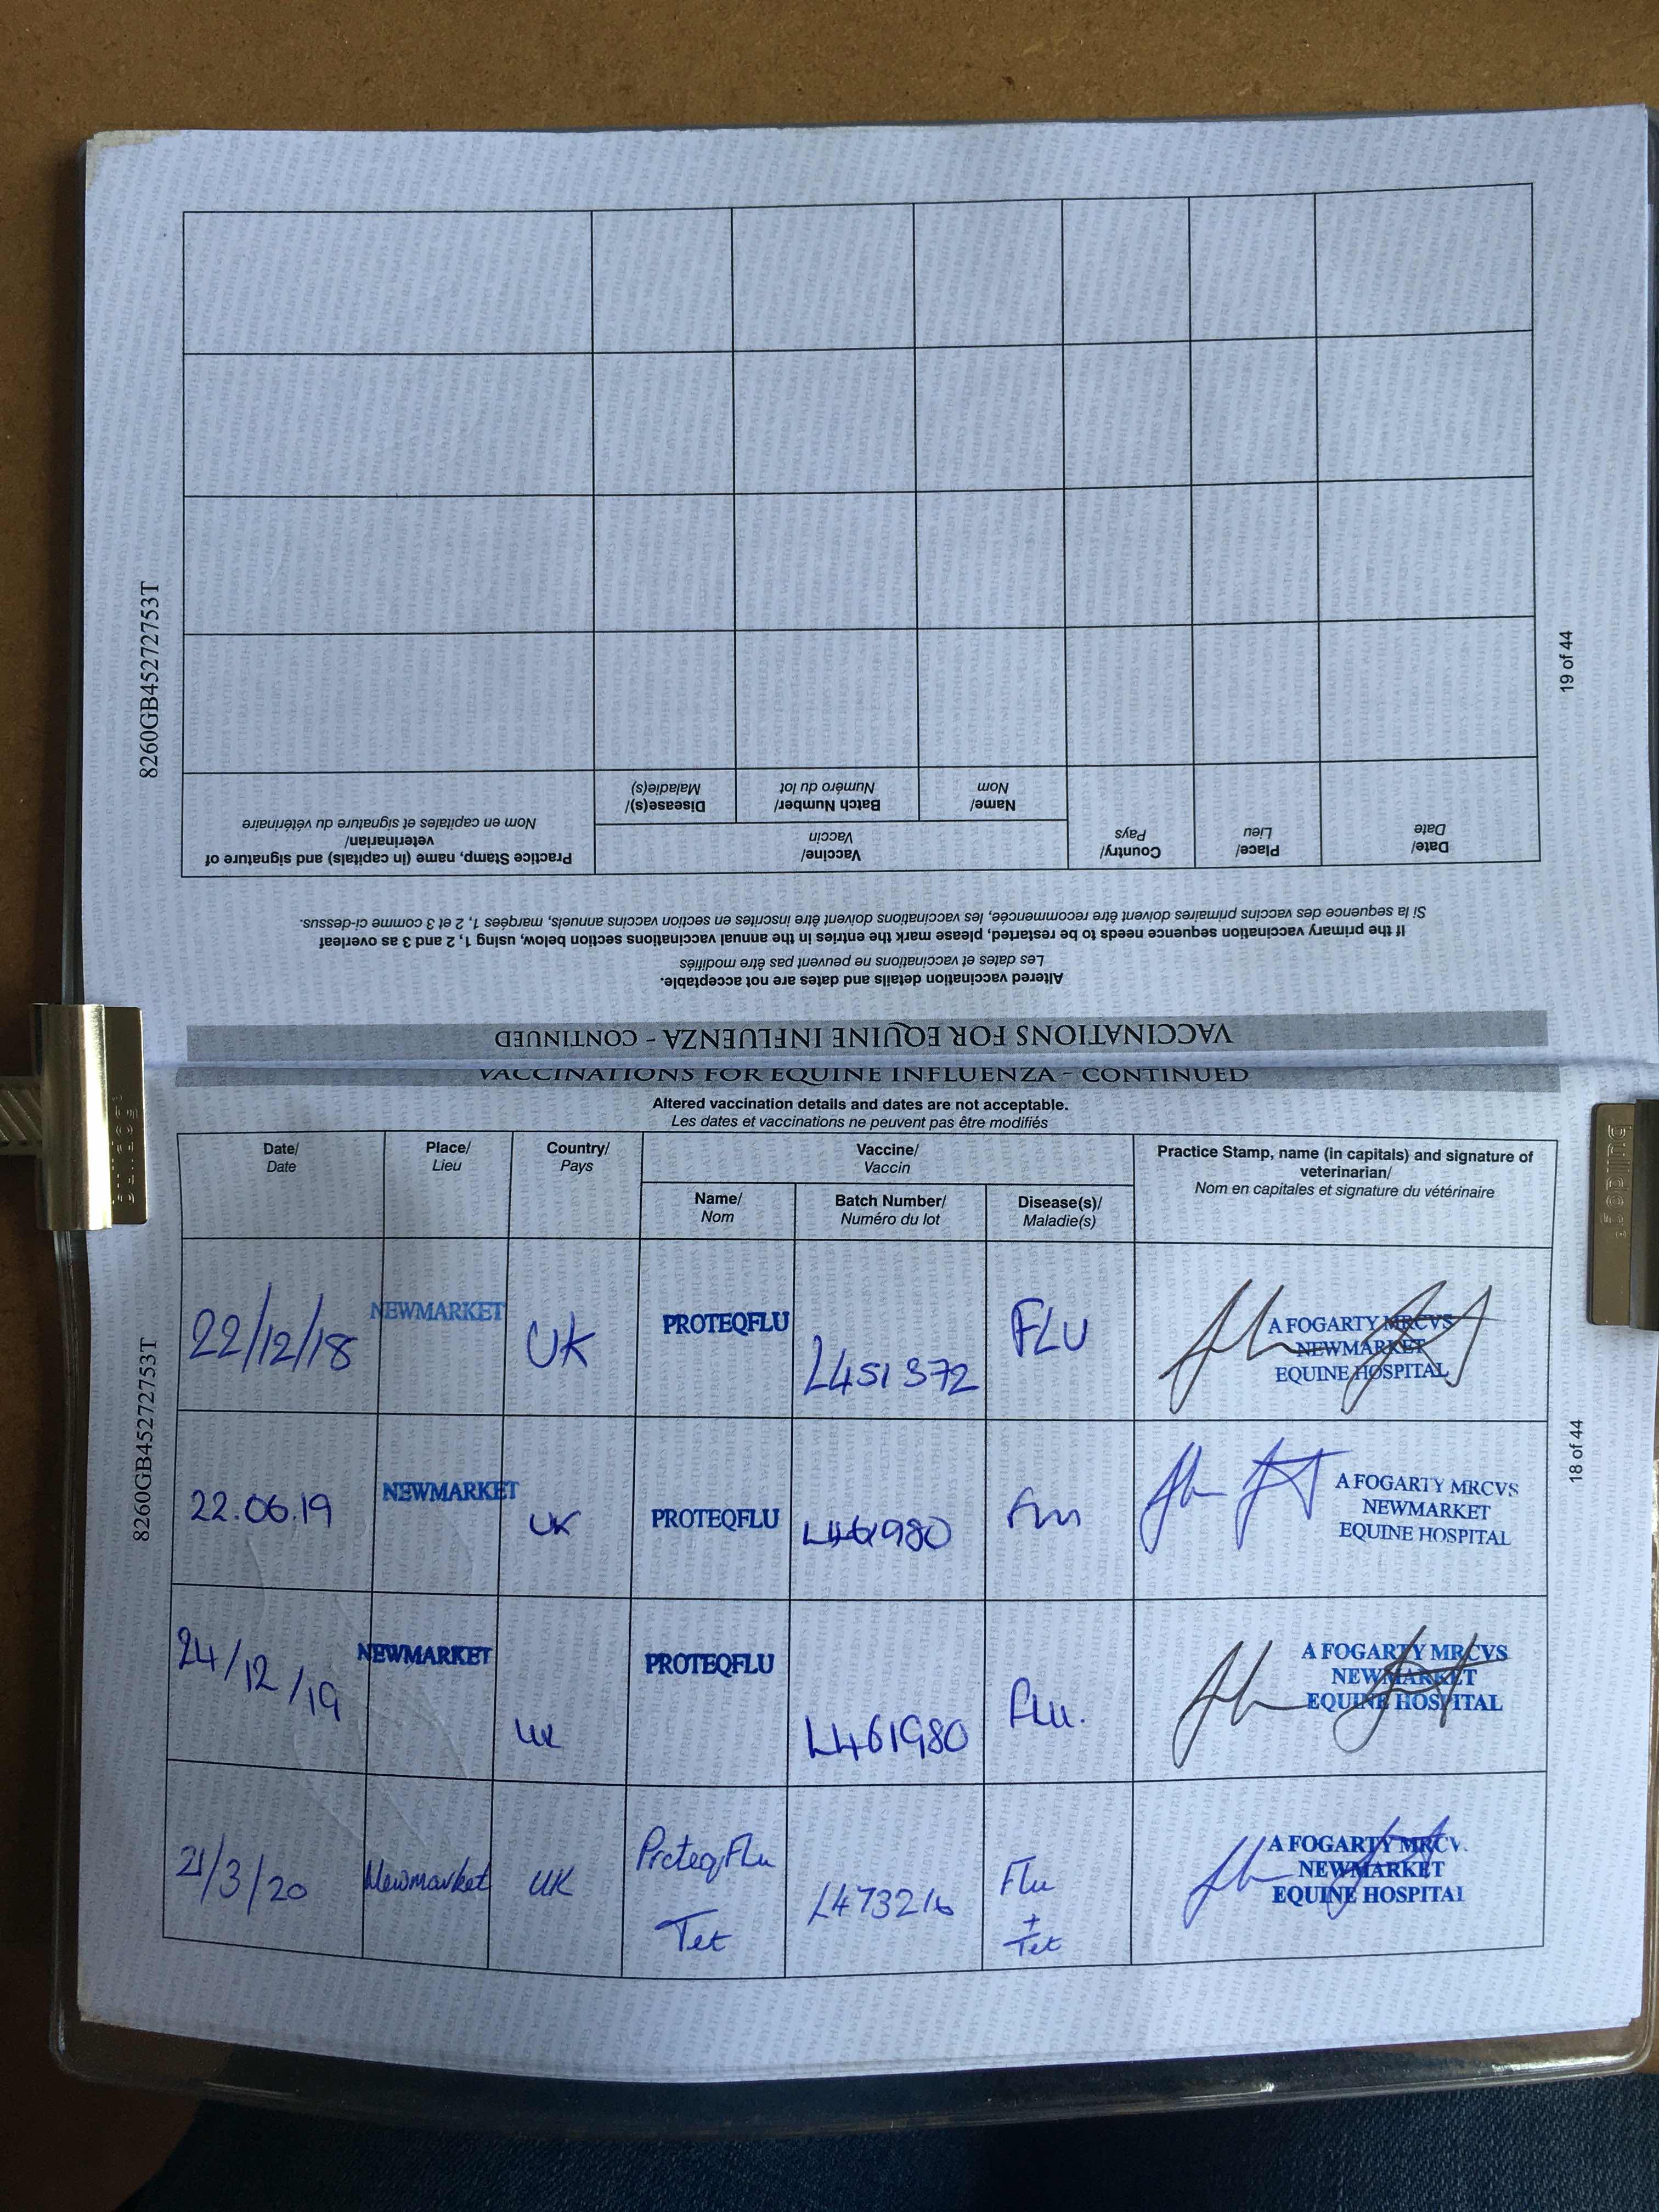 8260GB45272753T
19 of 44
VACCINATIONS FOR EQUINE INFLUENZA - CONTINUED
Altered vaccination details and dates are not acceptable.
Les dates et vaccinations ne peuvent pas être modifiés
If the primary vaccination sequence needs to be restarted, please mark the entries in the annual vaccinations section below, using 1, 2 and 3 as overleaf
Si la sequence des vaccins primaires doivent être recommencée, les vaccinations doivent être inscrites en section vaccins annuels, marqées 1, 2 et 3 comme ci-dessus.
Date/
Date
Place/
Lieu
Country/
Pays
Vaccine/
Vaccin
Name/
Nom
Batch Number/
Numéro du lot
Disease(s)/
Maladie(s)
Practice Stamp, name (in capitals) and signature of
veterinarian/
Nom en capitales et signature du vétérinaire
VACCINATIONS FOR EQUINE INFLUENZA - CONTINUED
Altered vaccination details and dates are not acceptable.
Les dates et vaccinations ne peuvent pas être modifiés
Date/
Date
Place/
Lieu
Country/
Pays
Vaccine/
Vaccin
Name/
Nom
Batch Number/
Numéro du lot
Disease(s)/
Maladie(s)
Practice Stamp, name (in capitals) and signature of
veterinarian/
Nom en capitales et signature du vétérinaire
22/12/18
NEWMARKET
UK
PROTEQFLU
L451372
FLU
A FOGARTY MRCVS
NEWMARKET
EQUINE HOSPITAL
22.06.19
NEWMARKET
UK
PROTEQFLU
L461980
Flu
A FOGARTY MRCVS
NEWMARKET
EQUINE HOSPITAL
24/12/19
NEWMARKET
UK
PROTEQFLU
L461980
Flu.
A FOGARTY MRCVS
NEWMARKET
EQUINE HOSPITAL
21/3/20
Newmarket
UK
ProteqFlu
Tet
L473216
Flu
+
Tet
A FOGARTY MRCV
NEWMARKET
EQUINE HOSPITAL
8260GB45272753T
18 of 44
bulldog
bulldog